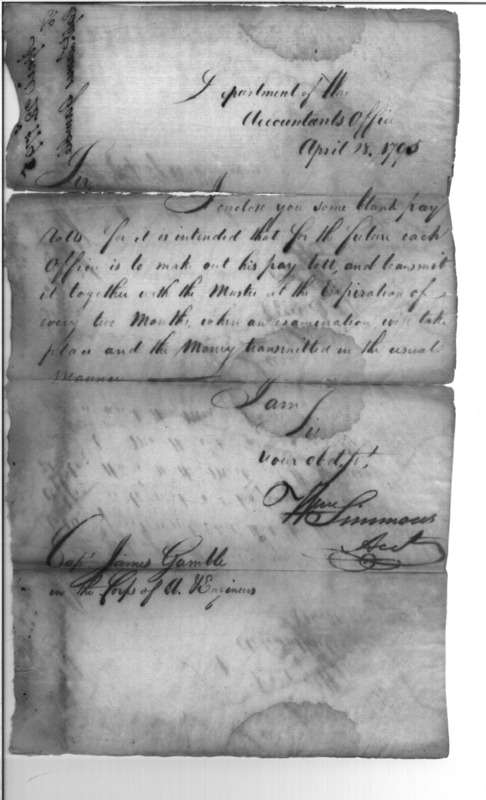 Department of War
Accountants Office
April 28, 1795
Sir
I enclose you some blank pay
rolls for it is intended that for the future each
Officer is to make out his pay roll and transmit
it together with the Muster at the Expiration of
every two Months, when an examination will take
place and the Money transmitted in the usual
manner
I am
Sir
your obdt. st.
Wm Simmons
Acct
Capt James Gamble
in the Corps of A. & Engineers